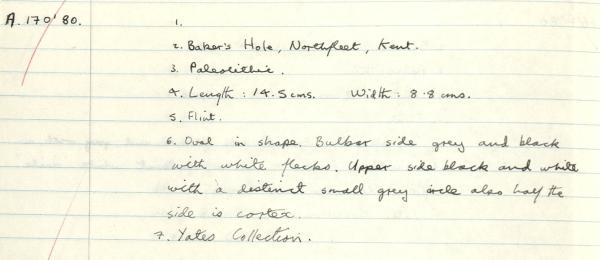 A.170'80.
1.
2. Baker's Hole, Northfleet, Kent.
3. Paleolithic.
4. Length : 14.5 cms. Width : 8.8 cms.
5. Flint.
6. Oval in shape. Bulbar side grey and black
with white flecks. Upper side black and white
with a distinct small grey circle also half the
side is cortex.
7. Yates Collection.